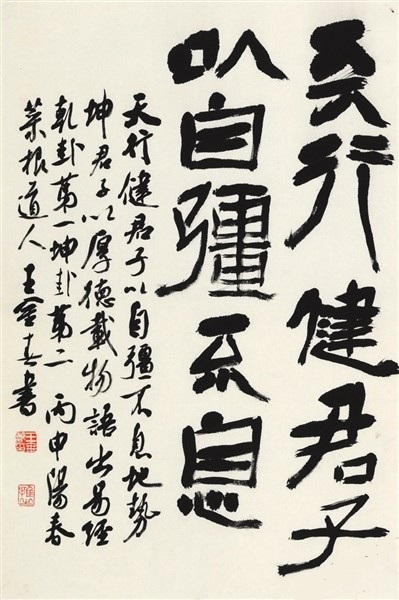 天行健君子
以自彊不息
天行健君子以自彊不息地勢
坤君子以厚德載物語出易經
乾卦第一坤卦第二 丙申陽春
菜根道人王書